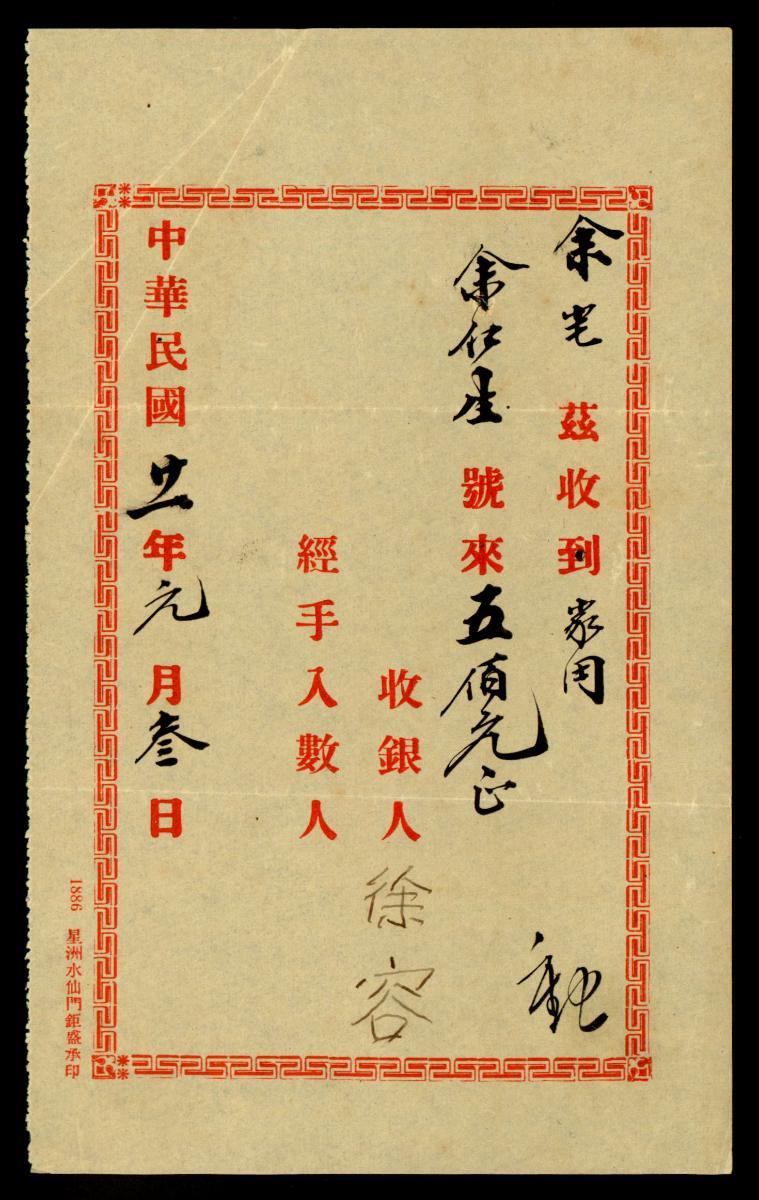 余 茲收到家用
余仁生號來五佰元正
收銀人 徐容
經手入數人
中華民國廿一年元月叁日
1886 星洲水仙門鉅盛承印